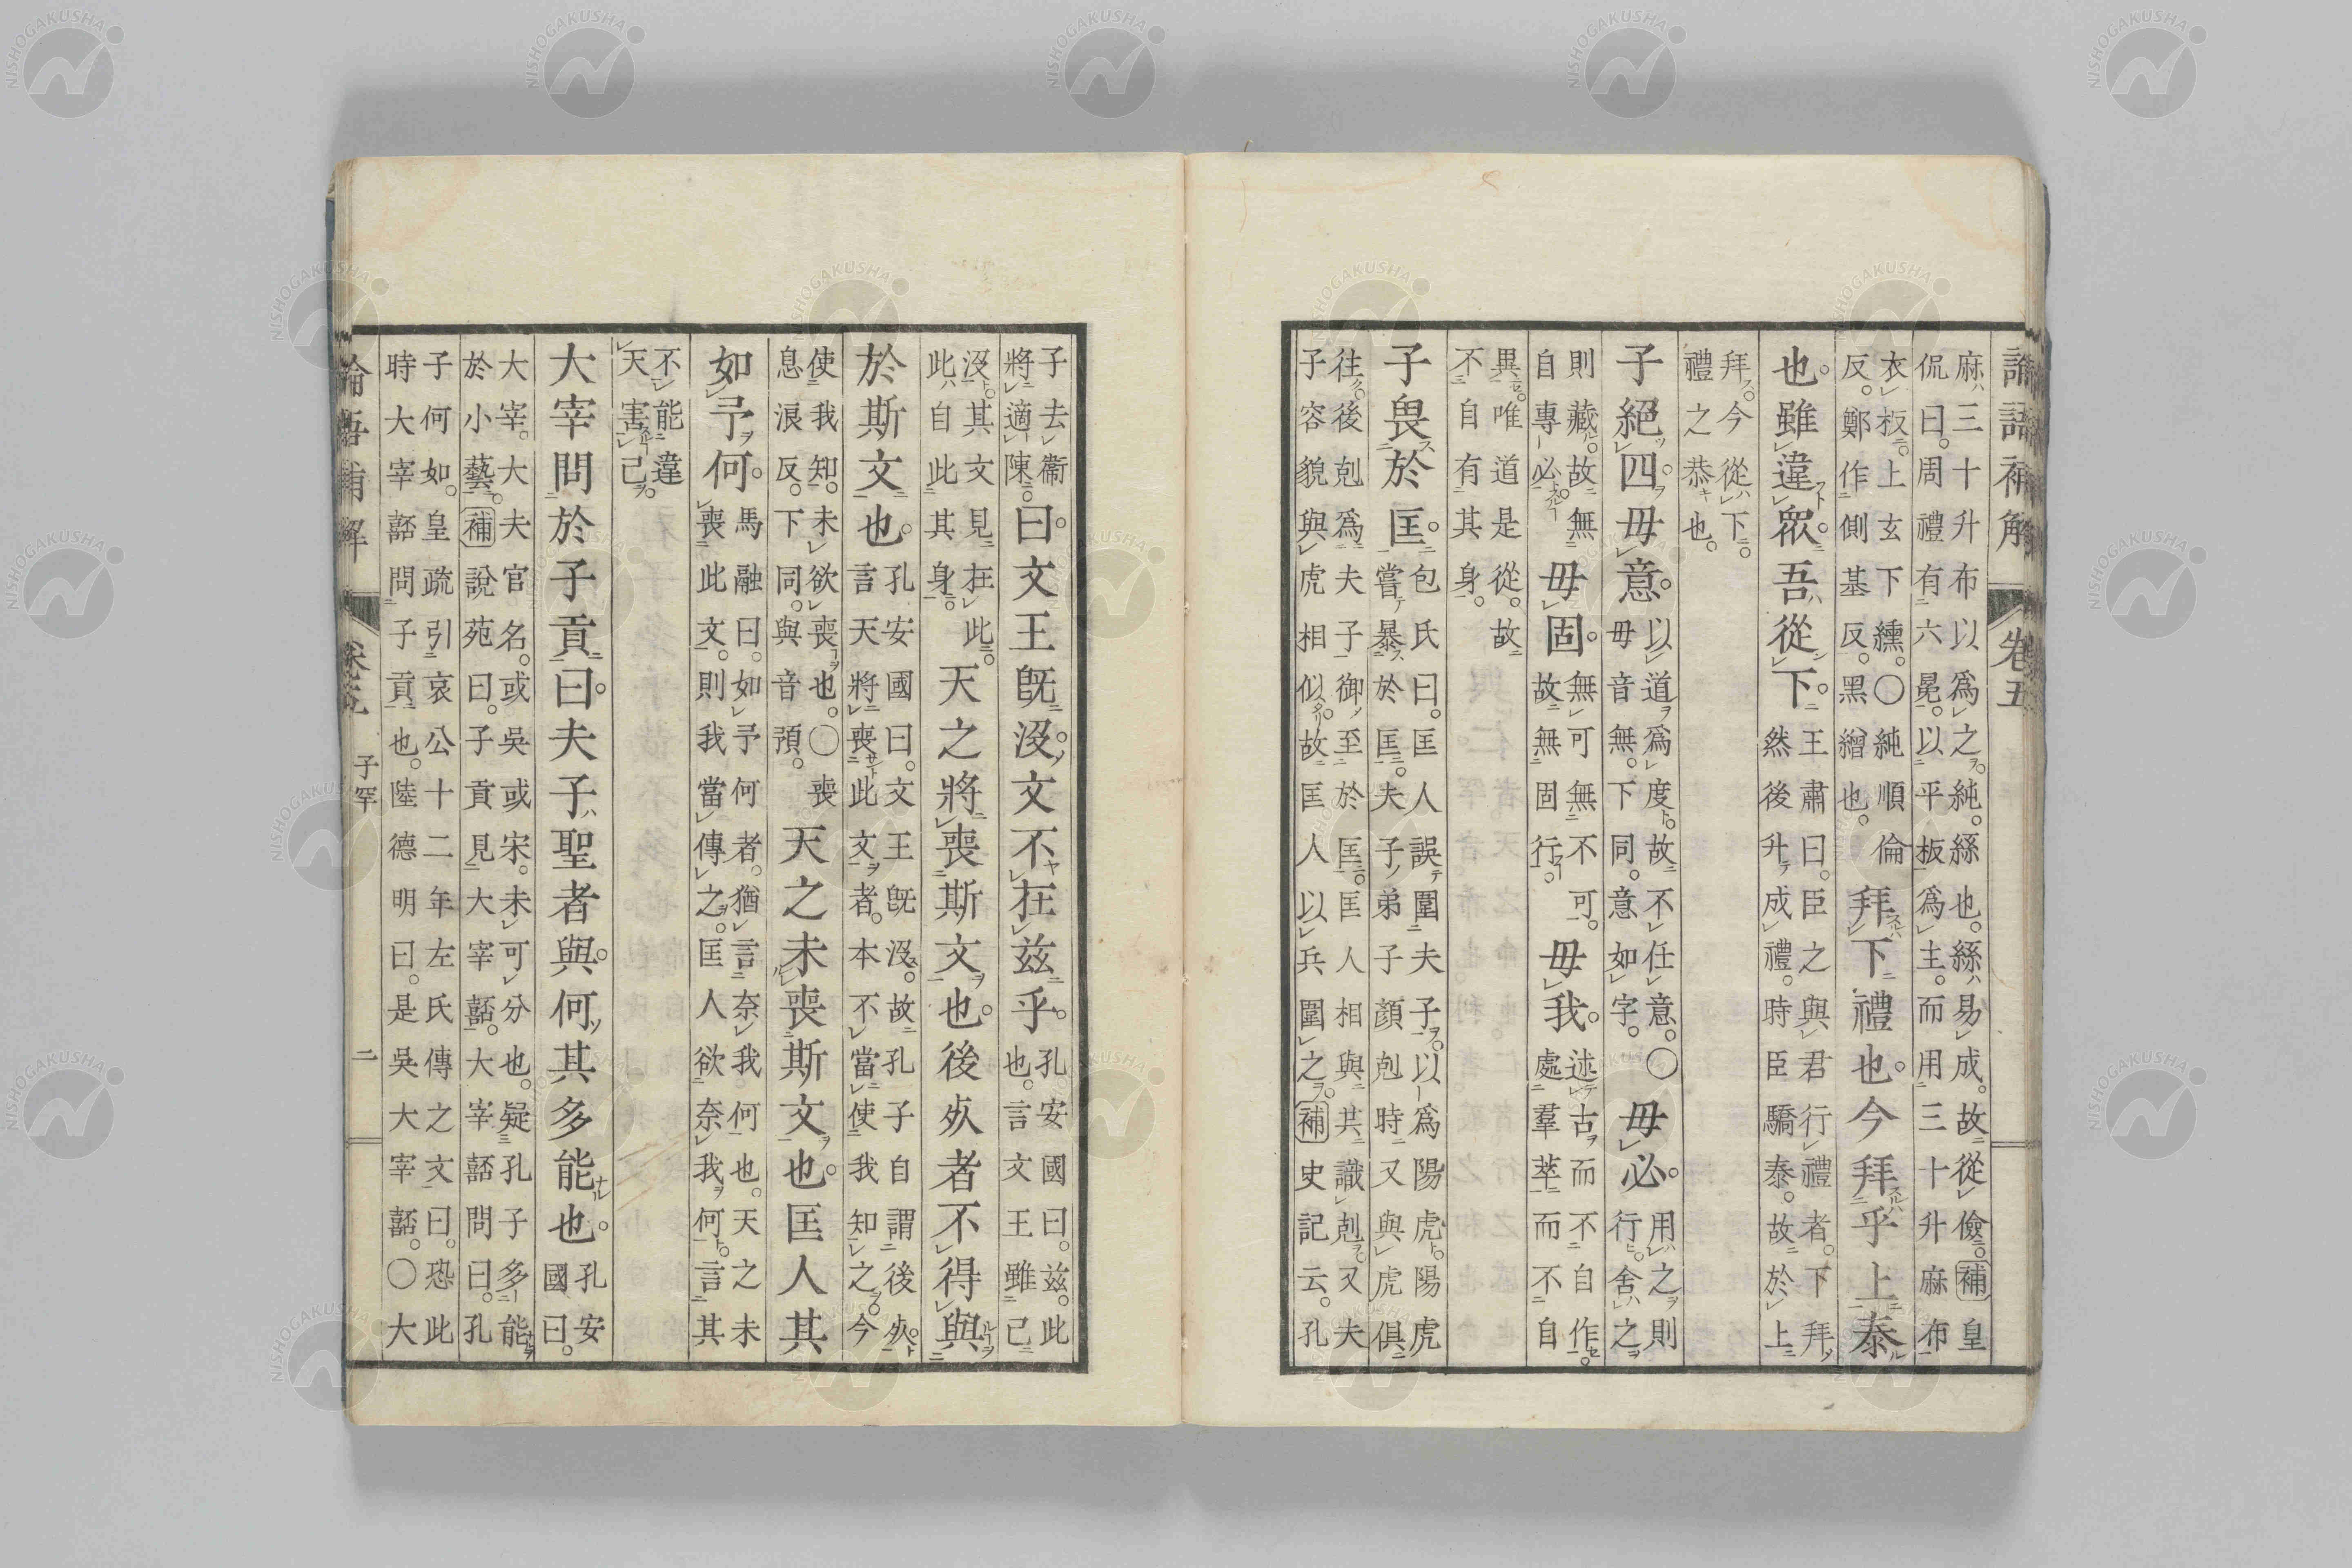 論語補解 卷五
麻三十升布以爲之。純。絲也。絲易成。故從儉。補皇
侃曰。周禮有六冕。以平板爲主。而用三十升麻布
衣板。上玄下纁。〇純順倫
反。鄭作側基反。黑繒也。
拜下禮也。今拜乎上泰
也。雖違衆。吾從下。
王肅曰。臣之與君行禮者。下拜
然後升成禮。時臣驕泰。故於上
拜。今從下。
禮之恭也。
子絕四。毋意。
以道爲度。故不任意。〇
毋音無。下同。意如字。
毋必。
用之則
行。舍之
則藏。故無
自專必。
毋固。
無可無不可。
故無固行。
毋我。
述古而不自作。
處羣萃而不自
異。唯道是從。故
不自有其身。
子畏於匡。
包氏曰。匡人誤圍夫子。以爲陽虎。陽虎
嘗暴於匡。夫子弟子顏剋時又與虎俱
往。後剋爲夫子御至於匡。匡人相與共識剋。又夫
子容貌與虎相似。故匡人以兵圍之。補史記云。孔
子去衞
將適陳。
曰。文王旣沒。文不在茲乎。
孔安國曰。茲。此
也。言文王雖已
沒。其文見在此。
此自此其身。
天之將喪斯文也。後死者不得與
於斯文也。
孔安國曰。文王旣沒。故孔子自謂後死。
言天將喪此文者。本不當使我知之。今
使我知。未欲喪也。〇喪
息浪反。下同。與音預。
天之未喪斯文也。匡人其
如予何。
馬融曰。如予何者。猶言奈我何也。天之未
喪此文。則我當傳之。匡人欲奈我何。言其
不能違
天害己。
大宰問於子貢曰。夫子聖者與。何其多能也。
孔安
國曰。
大宰。大夫官名。或吳或宋。未可分也。疑孔子多能
於小藝。補說苑曰。子貢見大宰嚭。大宰嚭問曰。孔
子何如。皇疏引哀公十二年左氏傳之文曰。恐此
時大宰嚭問子貢也。陸德明曰。是吳大宰嚭。〇大
論語補解 卷五 子罕 二
NISHOGAKUSHA